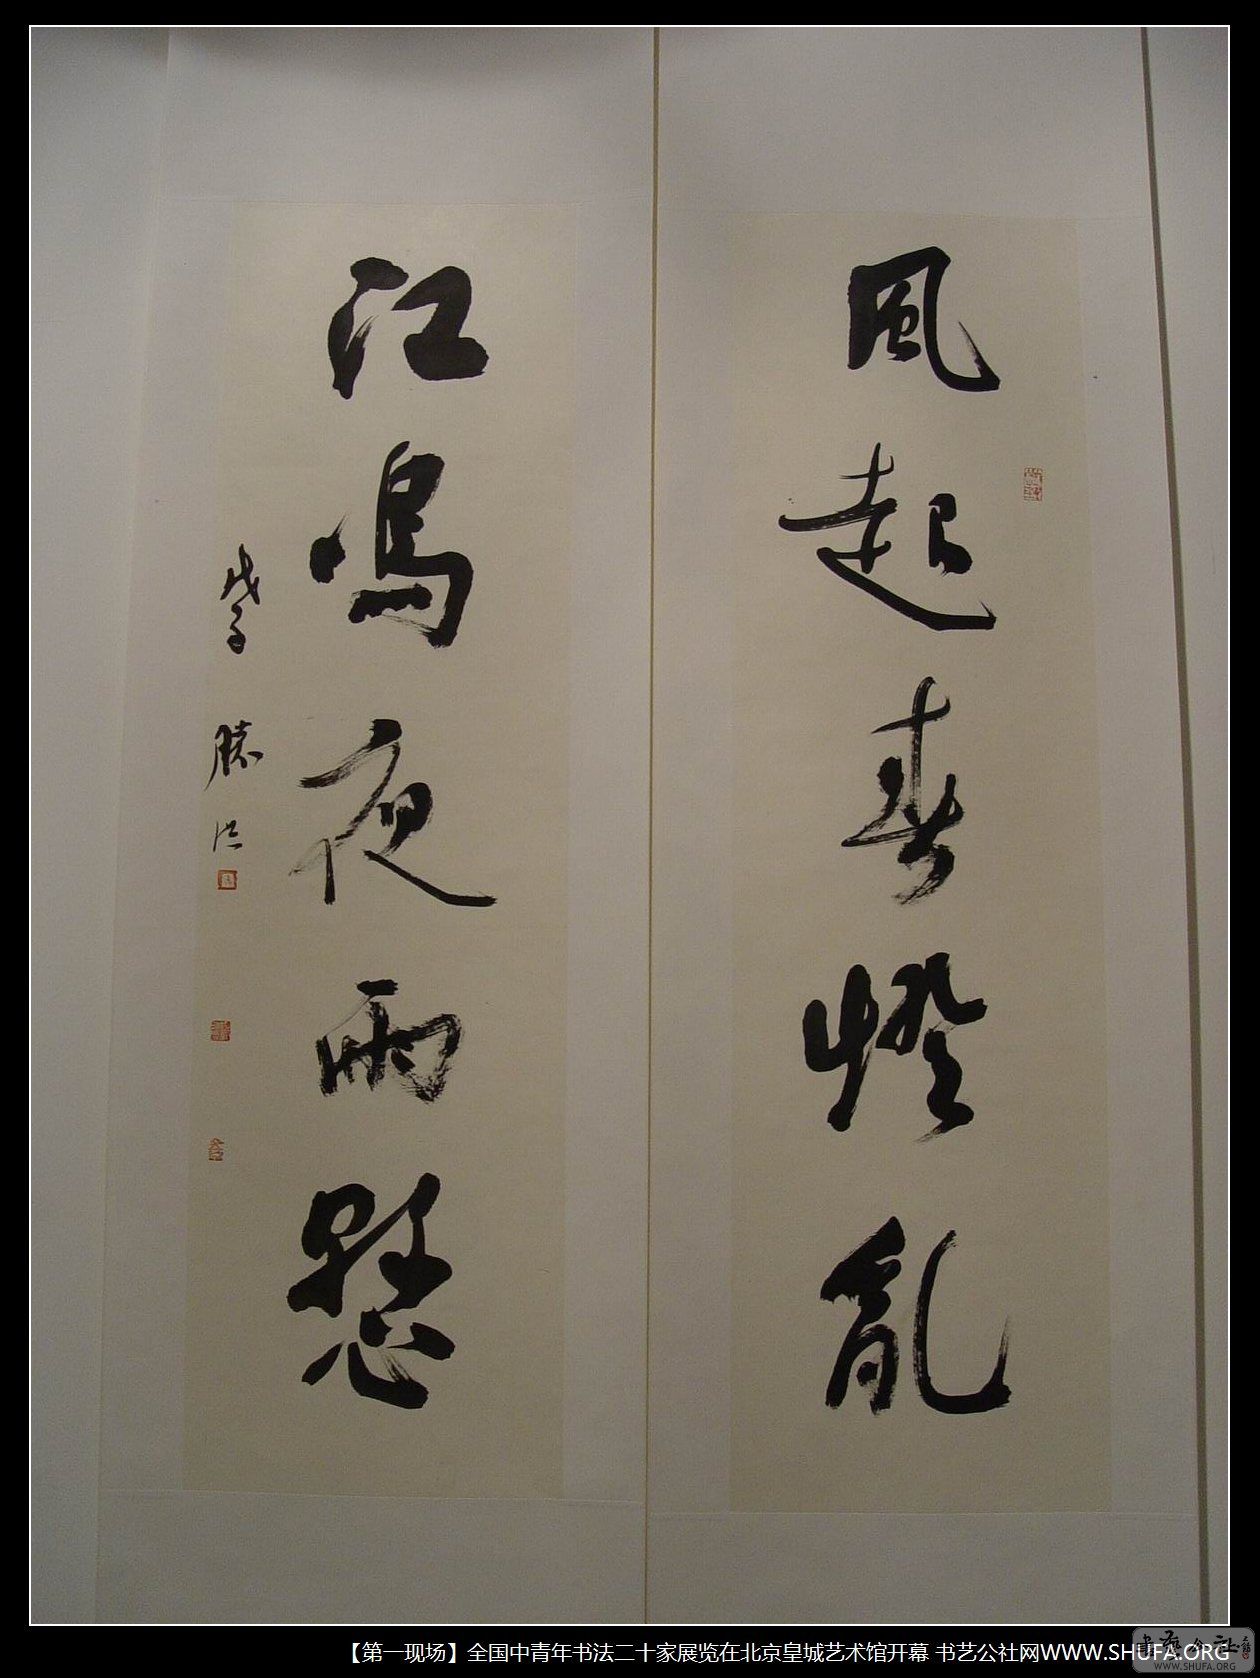 風起春燈亂
江鳴夜雨懸
戊子 勝洪
【第一现场】全国中青年书法二十家展览在北京皇城艺术馆开幕 书艺公社网WWW.SHUFA.ORG
书艺公社
WWW.SHUFA.ORG